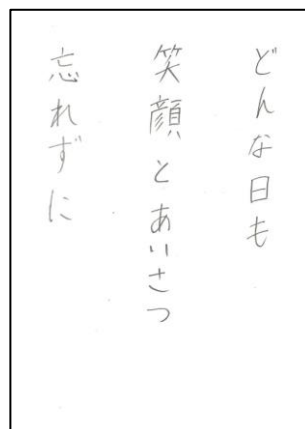 どんな日も
笑顔とあいさつ
忘れずに